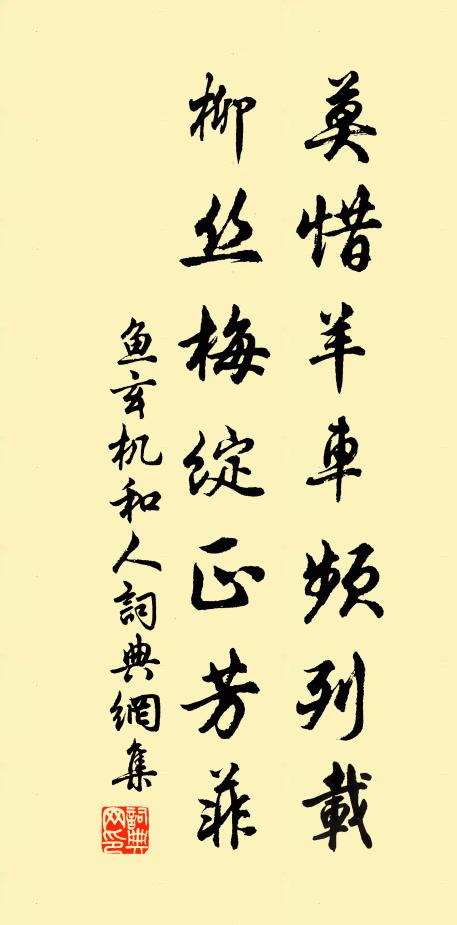 莫惜羊車頻列載
柳丝梅綻正芳菲
鱼玄机和人詞典網集
詞典
网印